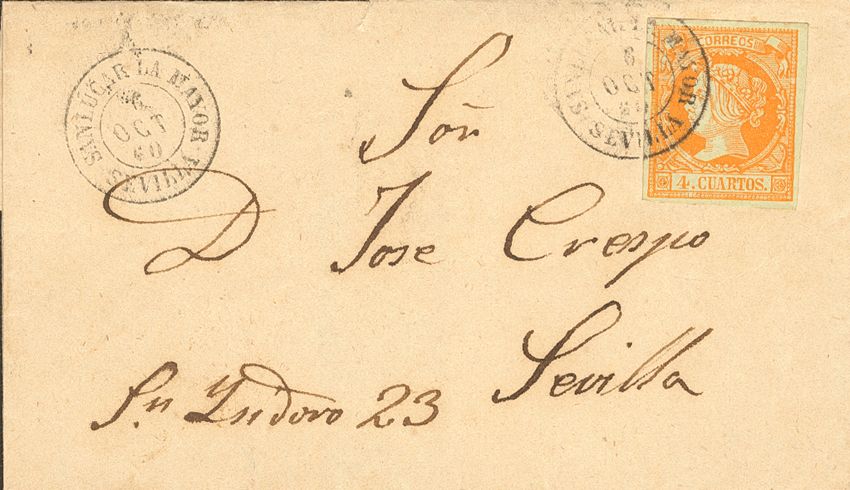 SANLUCAR LA MAYOR
6
OCT
60
SEVILLA
LA MAYOR
6
OCT
60
SEVILLA
CORREOS
4. CUARTOS.
Sõn
D Jose Crespo
Sevilla
Sn Ysidoro 23